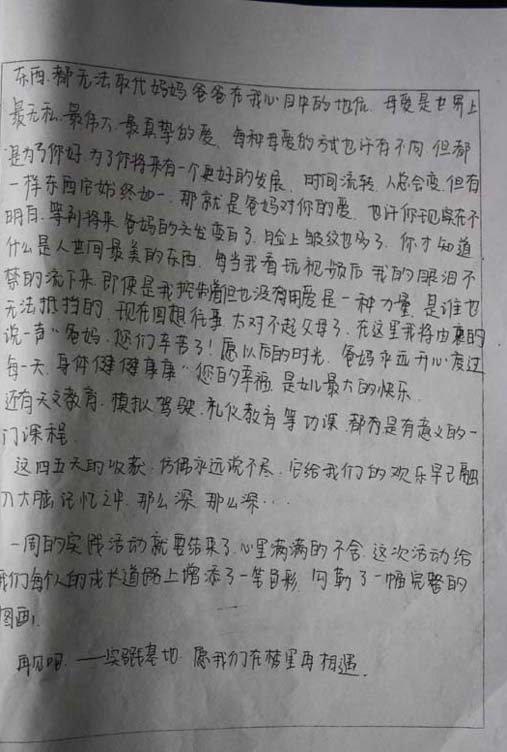 东西,都无法取代妈妈爸爸在我心目中的地位。母爱是世界上
最无私、最伟大、最真挚的爱。每种母爱的方式也许有不同,但都
是为了你好,为了你将来有一个更好的发展。时间流转,人总会变,但有
一样东西它始终如一,那就是爸妈对你的爱。也许你现在不
明白,等到将来,爸妈的头发变白了,脸上皱纹也多了,你才知道
什么是人世间最美的东西。每当我看玩视频后我的眼泪不
禁的流下来,即使是我控制着但也没有用爱是一种力量,是谁也
无法抵挡的,现在回想往事,太对不起父母了,在这里我将由衷的
说一声"爸妈,您们辛苦了!愿以后的时光,爸妈永远开心度过
每一天,身体健健康康"您的幸福,是女儿最大的快乐。
还有天文教育、模拟驾驶、礼仪教育等功课,都是有意义的一
门课程。
这四五天的收获,仿佛永远说不尽,它给我们的欢乐早已融
入大脑记忆之中,那么深,那么深…
一周的实践活动就要结束了,心里满满的不舍,这次活动给
我们每个人的成长道路上增添了一笔色彩,勾勒了一幅完整的
图画。
再见吧,——实践基地,愿我们在梦里再相遇。